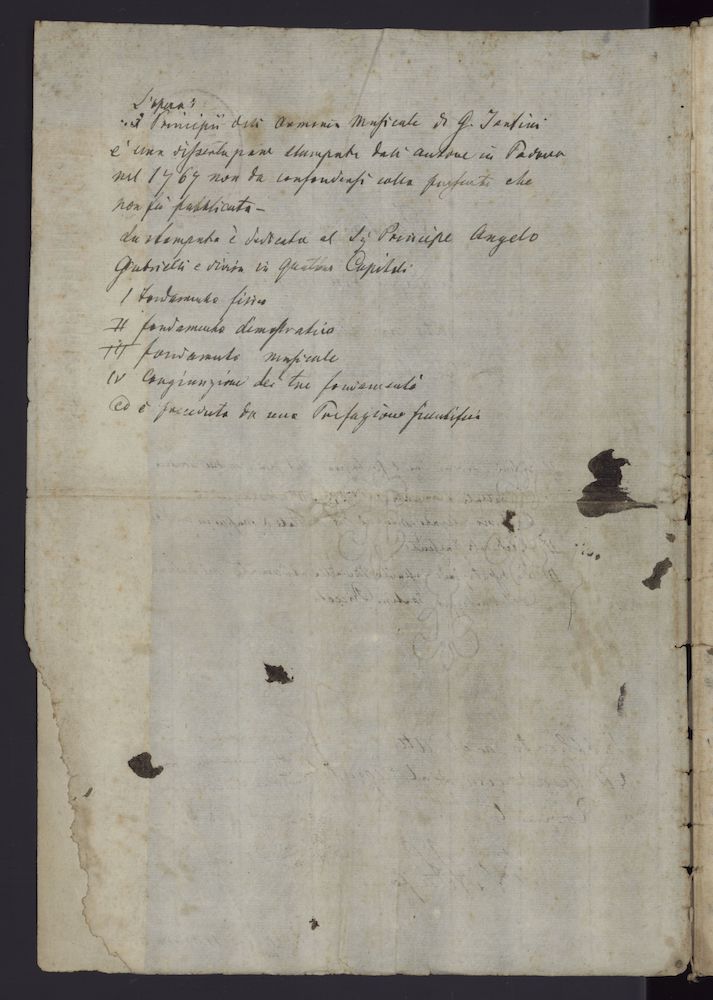 L'opera:
I Principii dell' armonia Musicale di G. Tartini
è una dissertazione stampata dall' autore in Padova
nel 1767 non da confondersi colla presente che
non fù pubblicata –
La stampata è dedicata al Sig Principe Angelo
Gabrielli e divisa in quattro Capitoli
I fondamento fisico
II fondamento dimostrativo
III fondamento musicale
IV Congiunzione dei tre fondamenti
ed è preceduta da una Prefazione